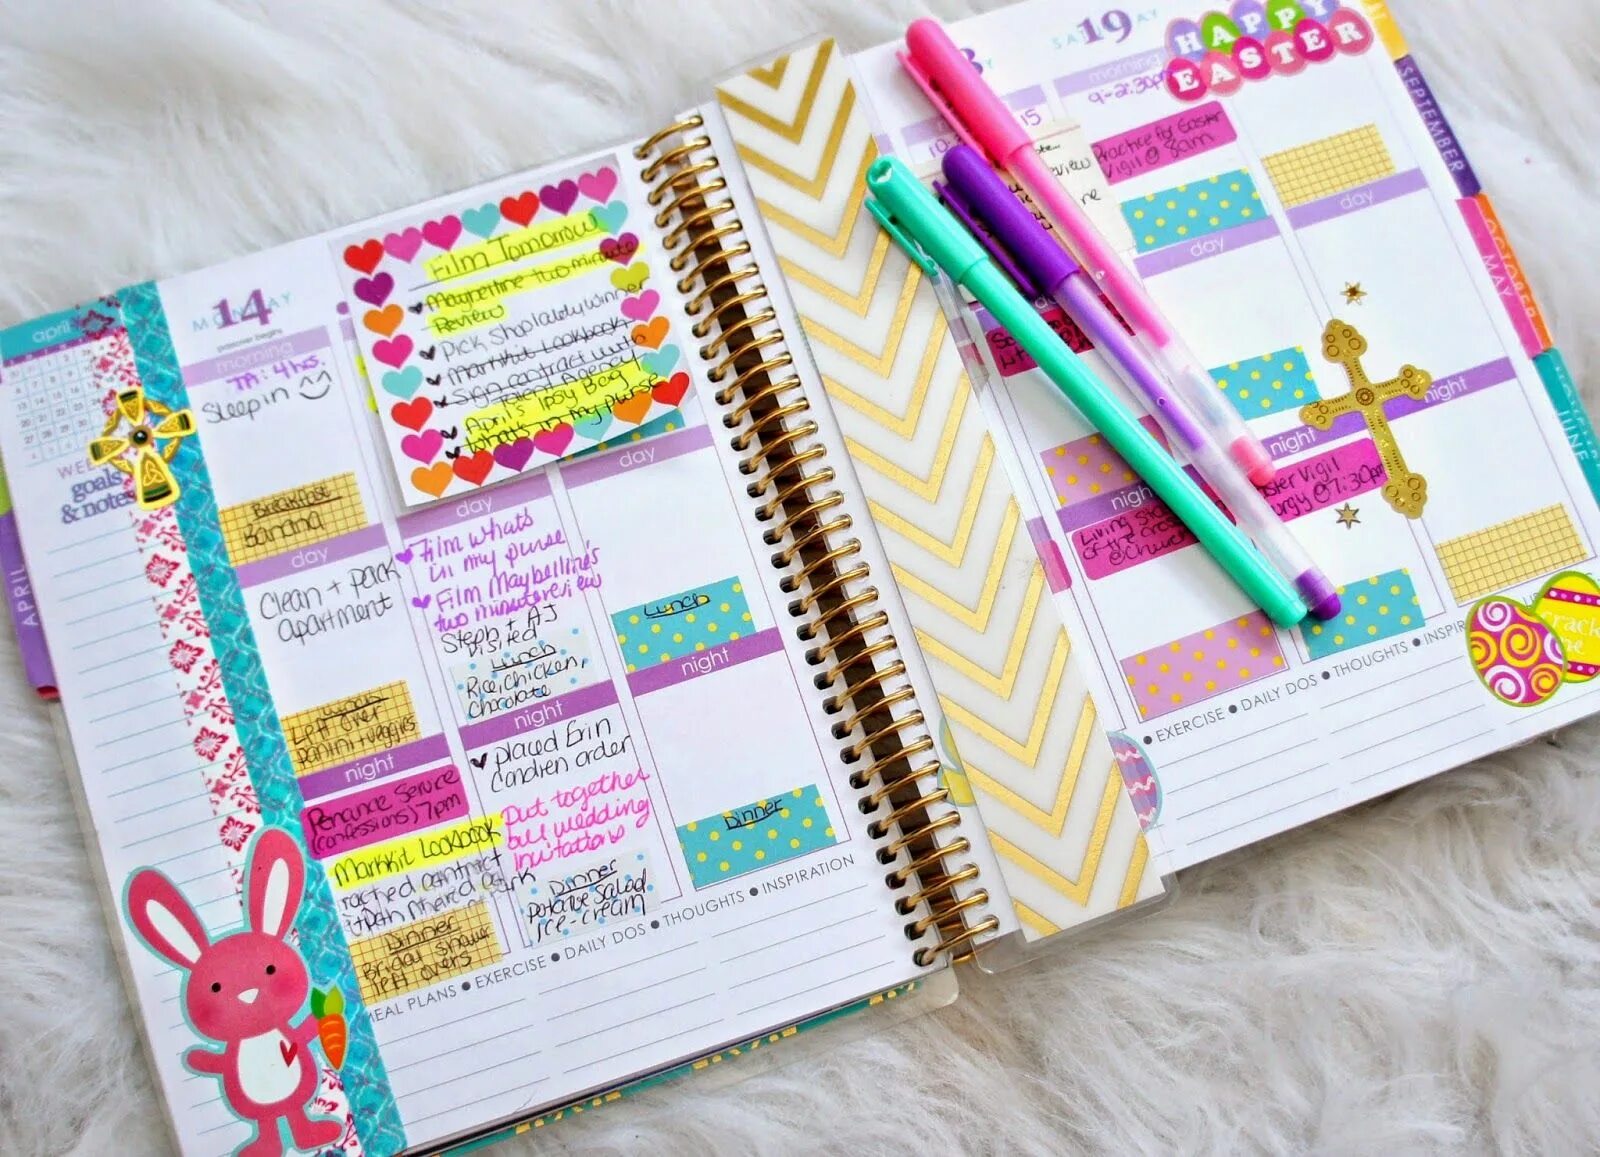 april
WEE
goals
& notes
APRIL
14
MONDAY
passover begins
morning
TA: 4 hrs.
Sleep in
Breakfast
Banana
day
Clean + pack
apartment
Lunch
Left over
panini + veggies
night
Penance Service
(confessions) 7pm
MarkKit Lookbook
Dinner
Friday
left overs
Film Tomorrow
Maybelline two minute
Review
Pick Shoplately Winner
MarkKit Lookbook
Sign contract with
Talent Agency
April's Ipsy Bag
What's in my purse
day
Film what's
in my purse
Film Maybelline's
two minute review
Steph + AJ
visited
Lunch
Rice, chicken,
chocolate
night
placed Erin
Condren order
Put together
our wedding
invitations
Dinner
Potatoe Salad
ice-cream
day
Lunch
night
Dinner
MEAL PLANS • EXERCISE • DAILY DOS • THOUGHTS • INSPIRATION
15
19
morning
9-2:30p
HAPPY
EASTER
Practice for Easter
Vigil @
day
night
Living Sta
of the Cross
@church
day
night
ster Vigil
@ 7:30pm
night
Crack
me
EXERCISE • DAILY DOS • THOUGHTS • INSPIR
SEPTEMBER
OCTOBER
MAY
JUNE